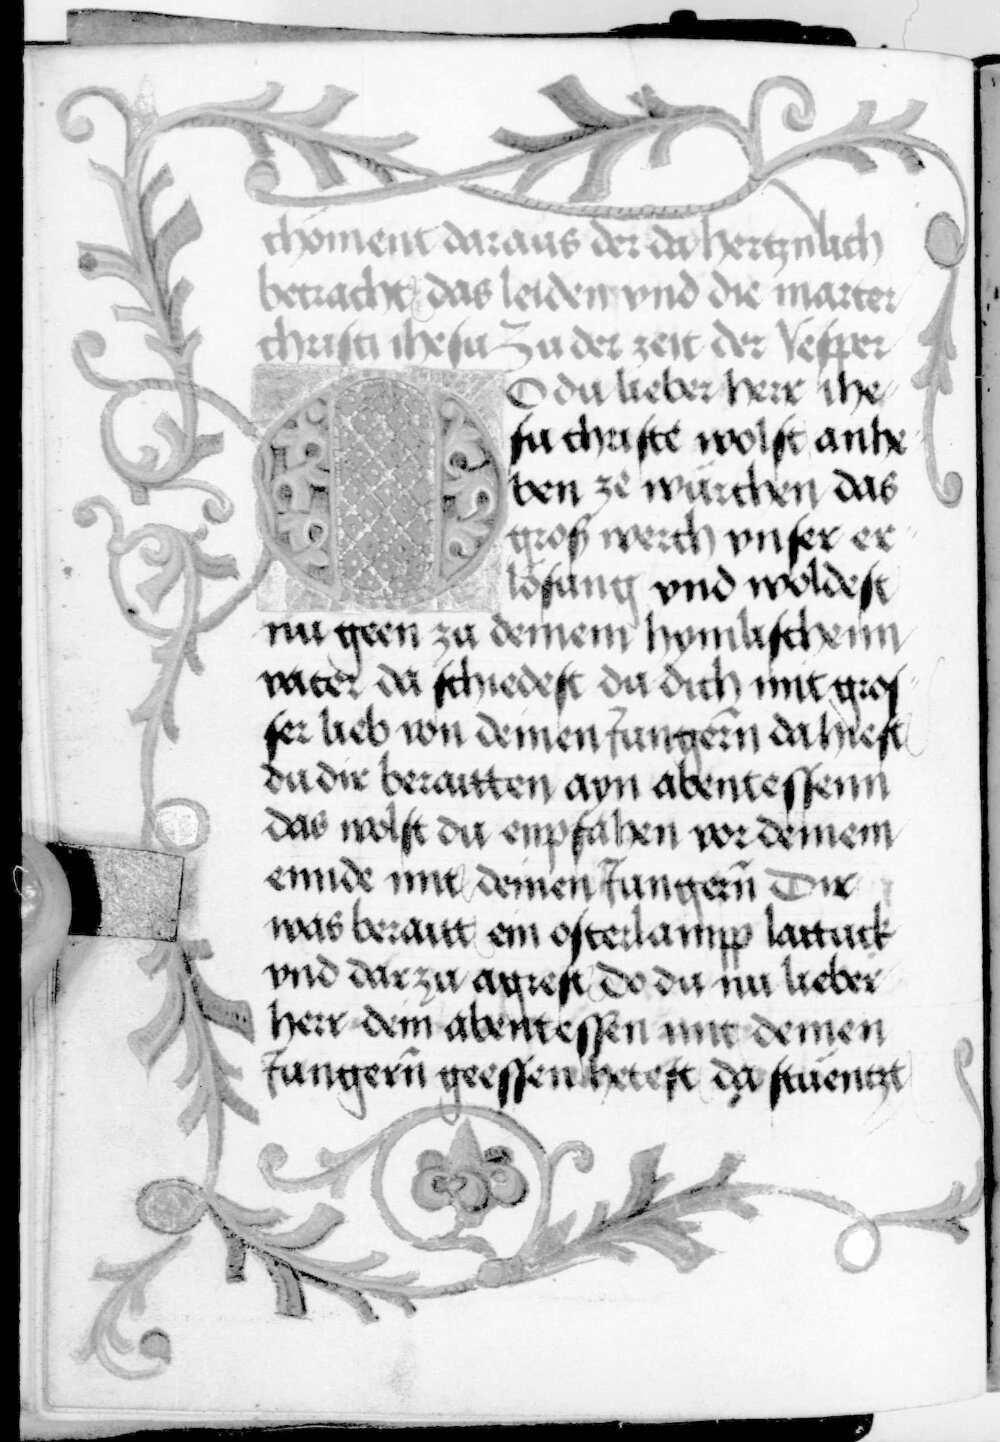 chöment daraus der da hertznlich
betracht das leiden vnd die marter
christi ihesu Zu der zeit der Vesper
O du lieber herr ihe
su christe wolst anhe
ben ze würchen das
gros werch vnser er
lösung vnd woldest
nu geen zu deinem hymlischenn
vater da schiedest du dich mit gros
ser lieb von deinen Jungern̄ da hiest
du dir beraitten ayn abentessenn
das wolst du enpfahen vor deinem
ennde mit deinen Jungern̄ Dir
was berautt ein osterlampp lattuck
vnd darzu agrest Do du nu lieber
herr dein abentessen mit deinen
Jungern̄ geessen hetest da stüentzt